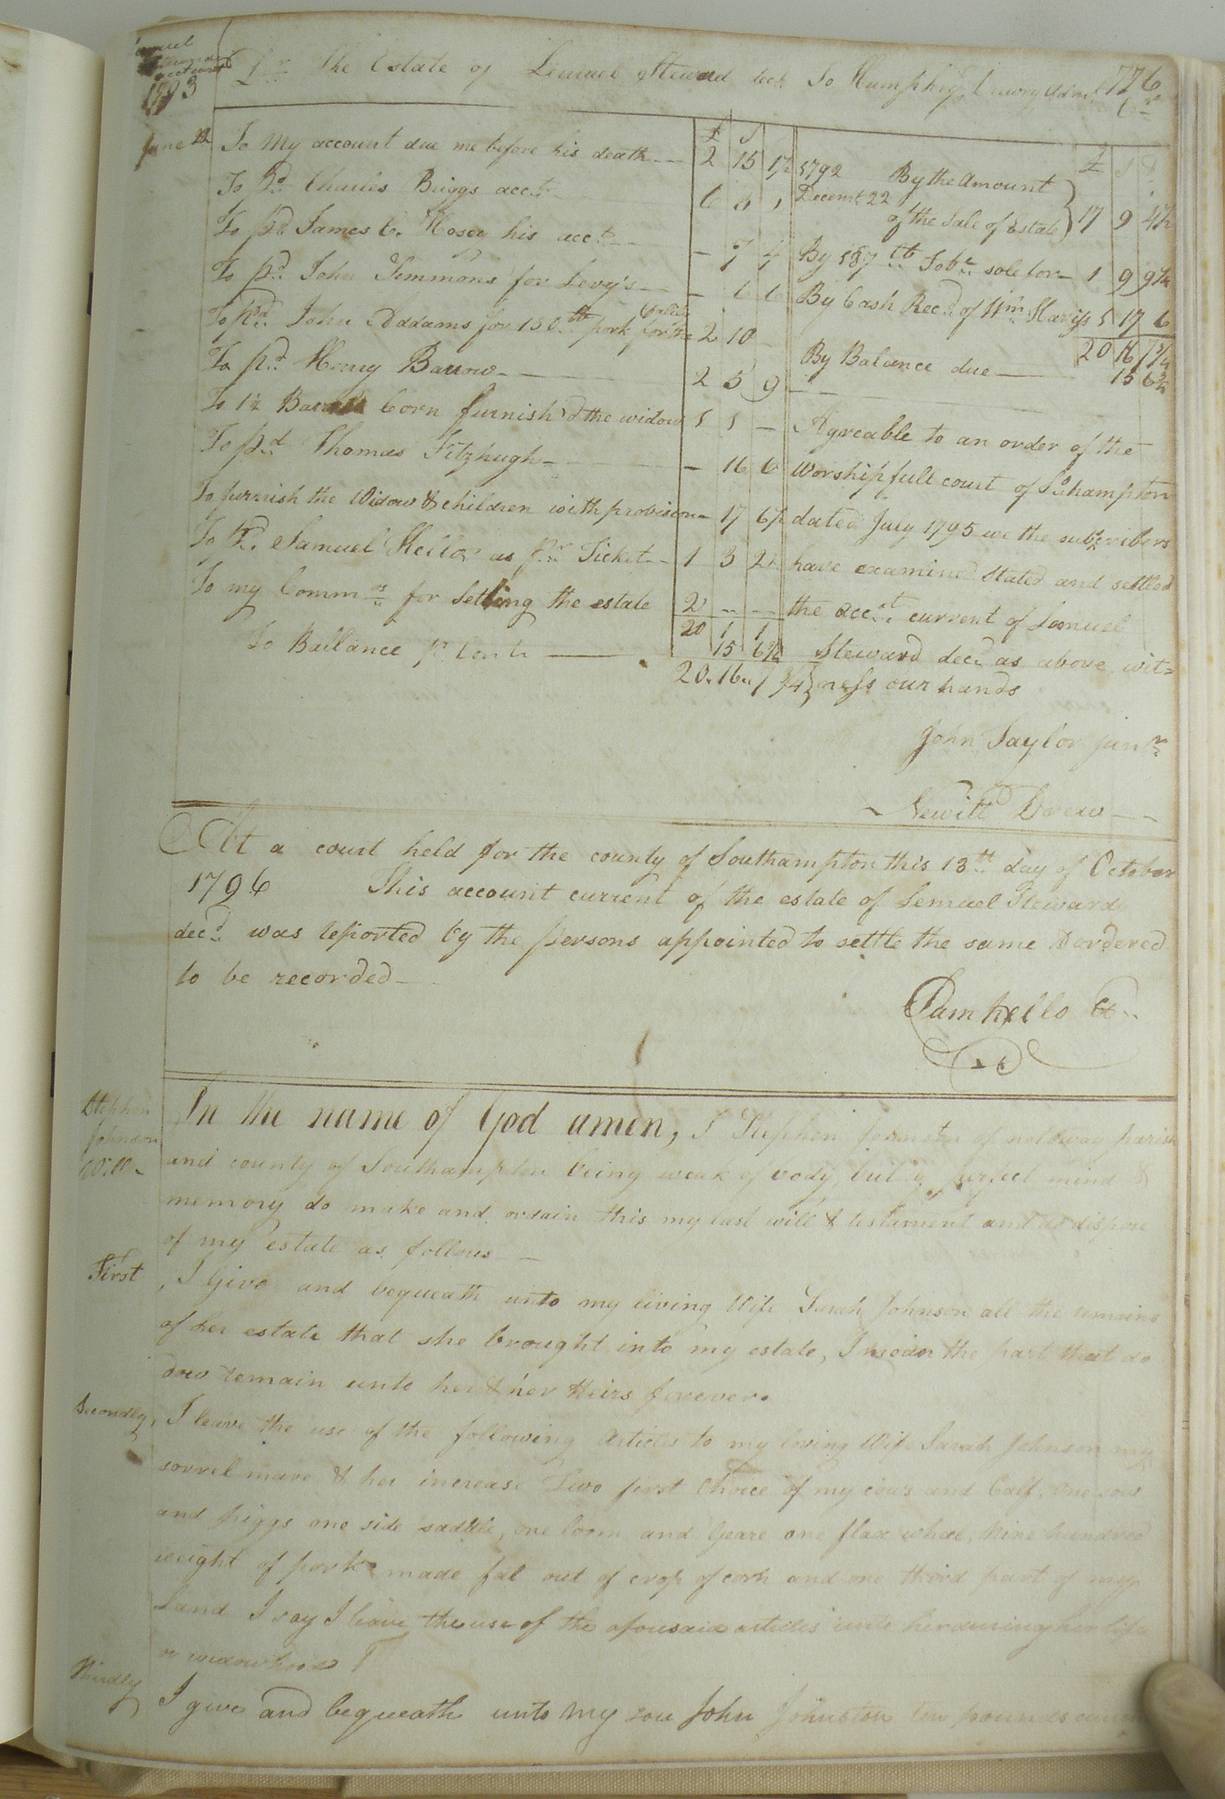 Dr The Estate of Lemuel Steward decd To Humphry Drewry Adm 776
Cr
1793
£ S
£ S D
June 22 To My account due me before his death 2 15 1½
To pd Charles Briggs acct
To pd James C. his acct - 7
To pd John Simmons for Levy's - 6 6
To pd John Addams for 150 lb pork 2 10 -
To pd Henry Barrow 2 5 9
To 1½ Barrels Corn furnishd the widow 1 1 -
To pd Thomas Fitzhugh - 16 6
To furnish the Widow & children with provision - 17 6½
To pd Samuel Kello as pr Ticket 1 3 2½
To my Commns for Setling the estate 2 -- --
20 1 1
To Ballance pr Contra 15 6¾
20.16.7¾
1792 By the Amount
Decemr 22
of the Sale of Estate 17 9 4½
By 587 lb Tobo sold for 1 9 9¼
By Cash Recd of Wm Harris 1 17 6
20 16 7¾
By Balance due 15 6¾
Agreable to an order of the
Worshipfull court of Sohampton
dated July 1795 we the subscribers
have examined Stated and settled
the acct current of Lemuel
Steward decd as above, wit=
ness our hands
John Taylor junr
Newitt Drew
At a court held for the county of Southampton this 13th day of October
1796 This account current of the estate of Lemuel Steward
decd was reported by the persons appointed to settle the same & ordered
to be recorded
Sam Kello Ct
Stephen
Johnson
Will
In the name of God amen, I Stephen Johnston of nottoway parish
and county of Southampton being weak of body but of perfect mind &
memory do make and ordain this my last will & testament and do dispose
of my estate as follows
First, I Give and bequeath unto my living Wife Sarah Johnson all the remains
of her estate that she brought into my estate, I mean the part that do
now remain unto her & her Heirs forever.
Secondly, I leave the use of the following Articles to my loving Wife Sarah Johnson my
sorrel mare & her increase Two first Choice of my cows and Calf, one sow
and piggs one side saddle, one loom and Geare one flax wheel, Nine hundred
weight of pork made fat out of crop of corn and one third part of my
Land I say I leave the use of the aforesaid articles unto her during her life
or widowhood
Thirdly I give and bequeath unto my son John Johnston ten pounds